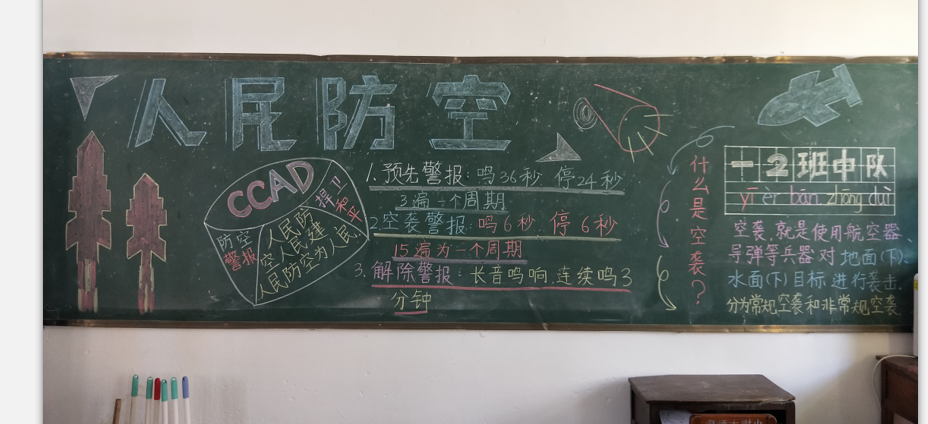 人民防空
CCAD
捍卫和平
防空警报
人民防
空人民建
人民防空为人民
1.预先警报:鸣36秒 停24秒
3遍一个周期
2.空袭警报:鸣6秒 停6秒
15遍为一个周期
3.解除警报:长音鸣响.连续鸣3
分钟
什么是空袭?
一2班中队
yī èr bān zhōng duì
空袭,就是使用航空器、
导弹等兵器对地面(下).
水面(下)目标.进行袭击.
分为常规空袭和非常规空袭.